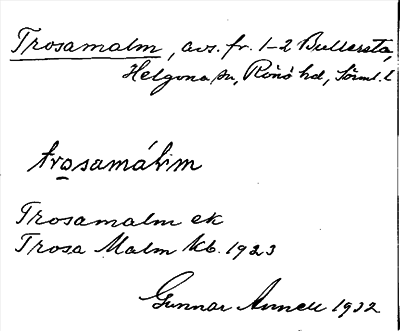 Trosamalm, avs. fr. 1-2 Bullersta,
Helgona sn, Rönö hd, Söml. l
trosamálim
Trosamalm ek
Trosa Malm Kb. 1923
Gunnar Annell 1932